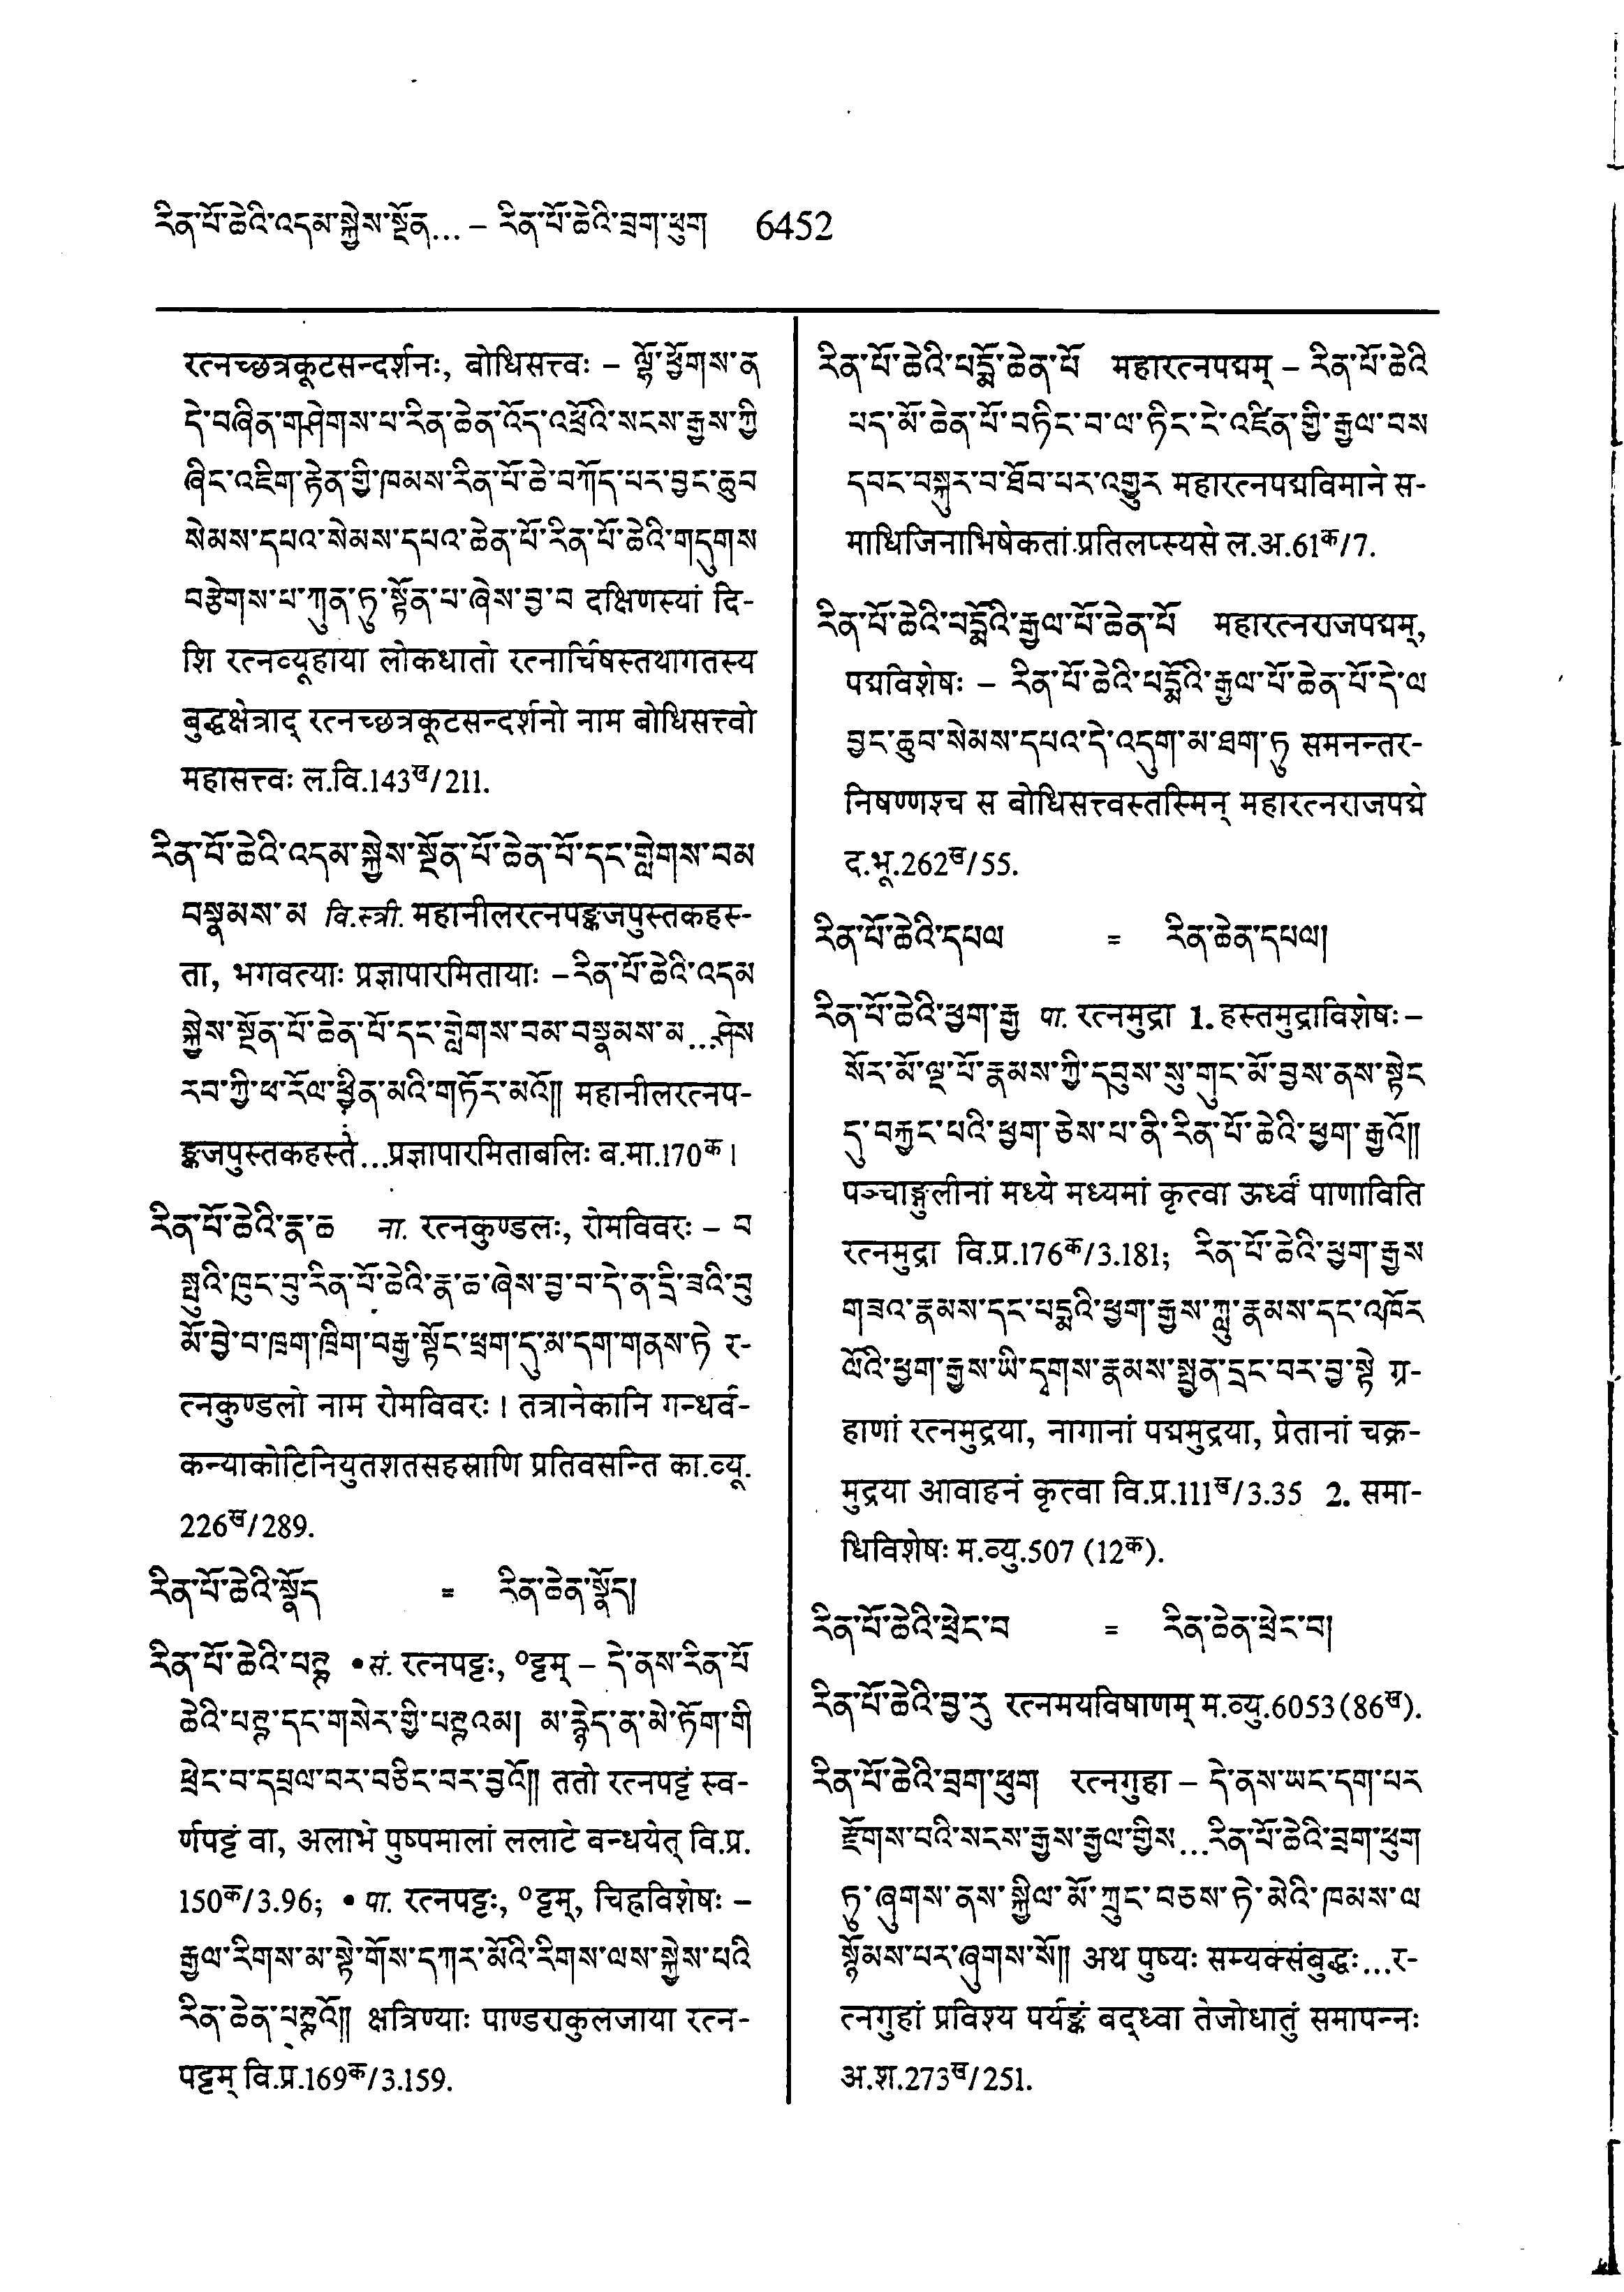 རིན་པོ་ཆེའི་འདམ་སྐྱེས་སྔོན... – རིན་པོ་ཆེའི་བྲག་ཕུག 6452
रत्नच्छत्रकूटसन्दर्शनः, बोधिसत्त्वः – ལྷོ་ཕྱོགས་ན
དེ་བཞིན་གཤེགས་པ་རིན་ཆེན་འོད་འཕྲོའི་སངས་རྒྱས་ཀྱི
ཞིང་འཇིག་རྟེན་གྱི་ཁམས་རིན་པོ་ཆེ་བཀོད་པར་བྱང་ཆུབ
སེམས་དཔའ་སེམས་དཔའ་ཆེན་པོ་རིན་པོ་ཆེའི་གདུགས
བརྩེགས་པ་ཀུན་ཏུ་སྟོན་པ་ཞེས་བྱ་བ दक्षिणस्यां दि-
शि रत्नव्यूहाया लोकधातो रत्नार्चिषस्तथागतस्य
बुद्धक्षेत्राद् रत्नच्छत्रकूटसन्दर्शनो नाम बोधिसत्त्वो
महासत्त्वः ल.वि.143ख/211.
རིན་པོ་ཆེའི་འདམ་སྐྱེས་སྔོན་པོ་ཆེན་པོ་དང་གླེགས་བམ
བསྣམས་མ वि.स्त्री. महानीलरत्नपङ्कजपुस्तकहस्-
ता, भगवत्याः प्रज्ञापारमितायाः –རིན་པོ་ཆེའི་འདམ
སྐྱེས་སྔོན་པོ་ཆེན་པོ་དང་གླེགས་བམ་བསྣམས་མ...ཤེས
རབ་ཀྱི་ཕ་རོལ་ཕྱིན་མའི་གཏོར་མའོ།། महानीलरत्नप-
ङ्कजपुस्तकहस्ते...प्रज्ञापारमिताबलिः ब.मा.170क।
རིན་པོ་ཆེའི་རྣ་ཆ ना. रत्नकुण्डलः, रोमविवरः – བ
སྤུའི་ཁུང་བུ་རིན་པོ་ཆེའི་རྣ་ཆ་ཞེས་བྱ་བ་དེ་ན་དྲི་ཟའི་བུ
མོ་བྱེ་བ་ཁྲག་ཁྲིག་བརྒྱ་སྟོང་ཕྲག་དུ་མ་དག་གནས་ཏེ र-
त्नकुण्डलो नाम रोमविवरः। तत्रानेकानि गन्धर्व-
कन्याकोटिनियुतशतसहस्राणि प्रतिवसन्ति का.व्यू.
226ख/289.
རིན་པོ་ཆེའི་སྣོད = རིན་ཆེན་སྣོད།
རིན་པོ་ཆེའི་པཊྚ •सं. रत्नपट्टः, ०ट्टम् – དེ་ནས་རིན་པོ
ཆེའི་པཊྚ་དང་གསེར་གྱི་པཊྚའམ། མ་རྙེད་ན་མེ་ཏོག་གི
ཕྲེང་བ་དཔྲལ་བར་བཅིང་བར་བྱའོ།། ततो रत्नपट्टं स्व-
र्णपट्टं वा, अलाभे पुष्पमालां ललाटे बन्धयेत् वि.प्र.
150क/3.96; • पा. रत्नपट्टः, ०ट्टम्, चिह्नविशेषः –
རྒྱལ་རིགས་མ་སྟེ་གོས་དཀར་མོའི་རིགས་ལས་སྐྱེས་པའི
རིན་ཆེན་པཊྚའོ།། क्षत्रिण्याः पाण्डराकुलजाया रत्न-
पट्टम् वि.प्र.169क/3.159.
རིན་པོ་ཆེའི་པདྨོ་ཆེན་པོ महारत्नपद्मम् – རིན་པོ་ཆེའི
པད་མོ་ཆེན་པོ་བཏིང་བ་ལ་ཏིང་ངེ་འཛིན་གྱི་རྒྱལ་བས
དབང་བསྐུར་བ་ཐོབ་པར་འགྱུར महारत्नपद्मविमाने स-
माधिजिनाभिषेकतां प्रतिलप्स्यसे ल.अ.61क/7.
རིན་པོ་ཆེའི་པདྨོའི་རྒྱལ་པོ་ཆེན་པོ महारत्नराजपद्मम्,
पद्मविशेषः – རིན་པོ་ཆེའི་པདྨོའི་རྒྱལ་པོ་ཆེན་པོ་དེ་ལ
བྱང་ཆུབ་སེམས་དཔའ་དེ་འདུག་མ་ཐག་ཏུ समनन्तर-
निषण्णश्च स बोधिसत्त्वस्तस्मिन् महारत्नराजपद्मे
द.भू.262ख/55.
རིན་པོ་ཆེའི་དཔལ = རིན་ཆེན་དཔལ།
རིན་པོ་ཆེའི་ཕྱག་རྒྱ पा. रत्नमुद्रा 1. हस्तमुद्राविशेषः –
སོར་མོ་ལྔ་པོ་རྣམས་ཀྱི་དབུས་སུ་གུང་མོ་བྱས་ནས་སྟེང
དུ་བརྐྱང་པའི་ཕྱག་ཅེས་པ་ནི་རིན་པོ་ཆེའི་ཕྱག་རྒྱའོ།།
पञ्चाङ्गुलीनां मध्ये मध्यमां कृत्वा ऊर्ध्वं पाणाविति
रत्नमुद्रा वि.प्र.176क/3.181; རིན་པོ་ཆེའི་ཕྱག་རྒྱས
གཟའ་རྣམས་དང་པདྨའི་ཕྱག་རྒྱས་ཀླུ་རྣམས་དང་འཁོར
ལོའི་ཕྱག་རྒྱས་ཡི་དྭགས་རྣམས་སྤྱན་དྲང་བར་བྱ་སྟེ ग्र-
हाणां रत्नमुद्रया, नागानां पद्ममुद्रया, प्रेतानां चक्र-
मुद्रया आवाहनं कृत्वा वि.प्र.111ख/3.35 2. समा-
धिविशेषः म.व्यु.507 (12क).
རིན་པོ་ཆེའི་ཕྲེང་བ = རིན་ཆེན་ཕྲེང་བ།
རིན་པོ་ཆེའི་བྱ་རུ रत्नमयविषाणम् म.व्यु.6053(86ख).
རིན་པོ་ཆེའི་བྲག་ཕུག रत्नगुहा – དེ་ནས་ཡང་དག་པར
རྫོགས་པའི་སངས་རྒྱས་རྒྱལ་གྱིས...རིན་པོ་ཆེའི་བྲག་ཕུག
ཏུ་ཞུགས་ནས་སྐྱིལ་མོ་ཀྲུང་བཅས་ཏེ་མེའི་ཁམས་ལ
སྙོམས་པར་ཞུགས་སོ།། अथ पुष्यः सम्यक्संबुद्धः...र-
त्नगुहां प्रविश्य पर्यङ्कं बद्ध्वा तेजोधातुं समापन्नः
अ.श.273ख/251.